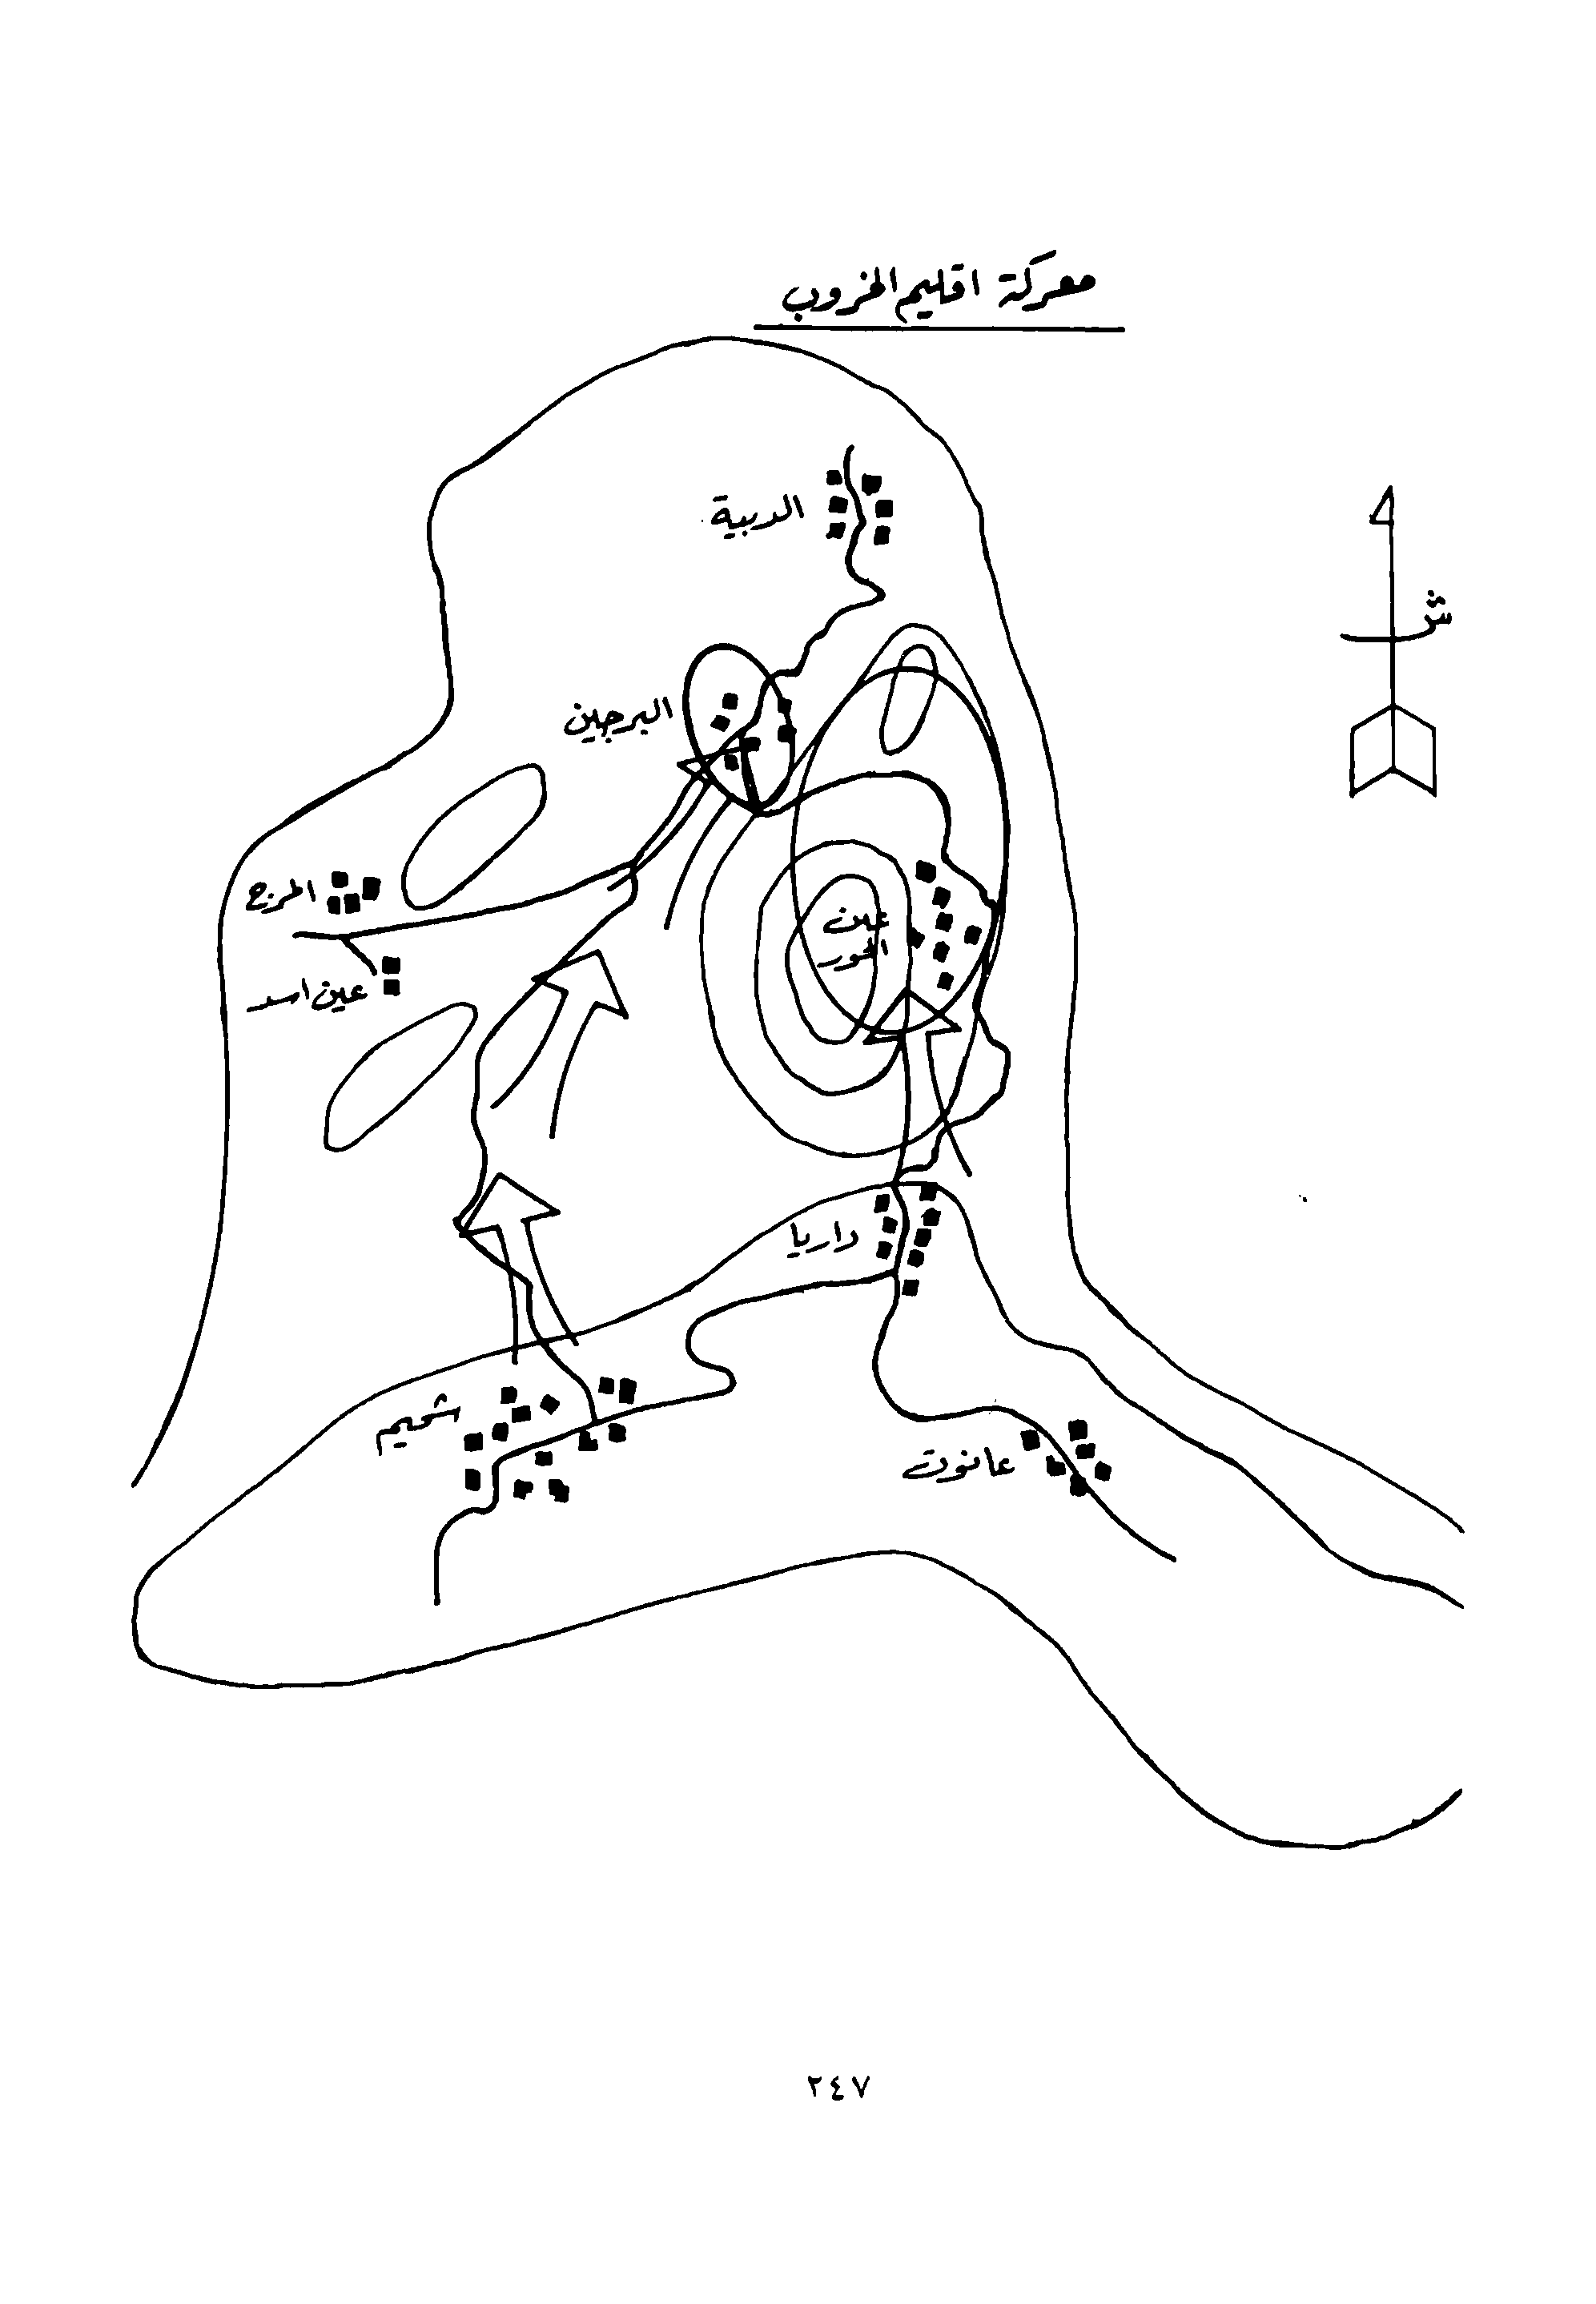 معركة اقليم الخروب
الدبية
ش
البرجين
المزرج
عين
الحور
عين اسد
داريا
شحيم
عانوت
٢٤٧